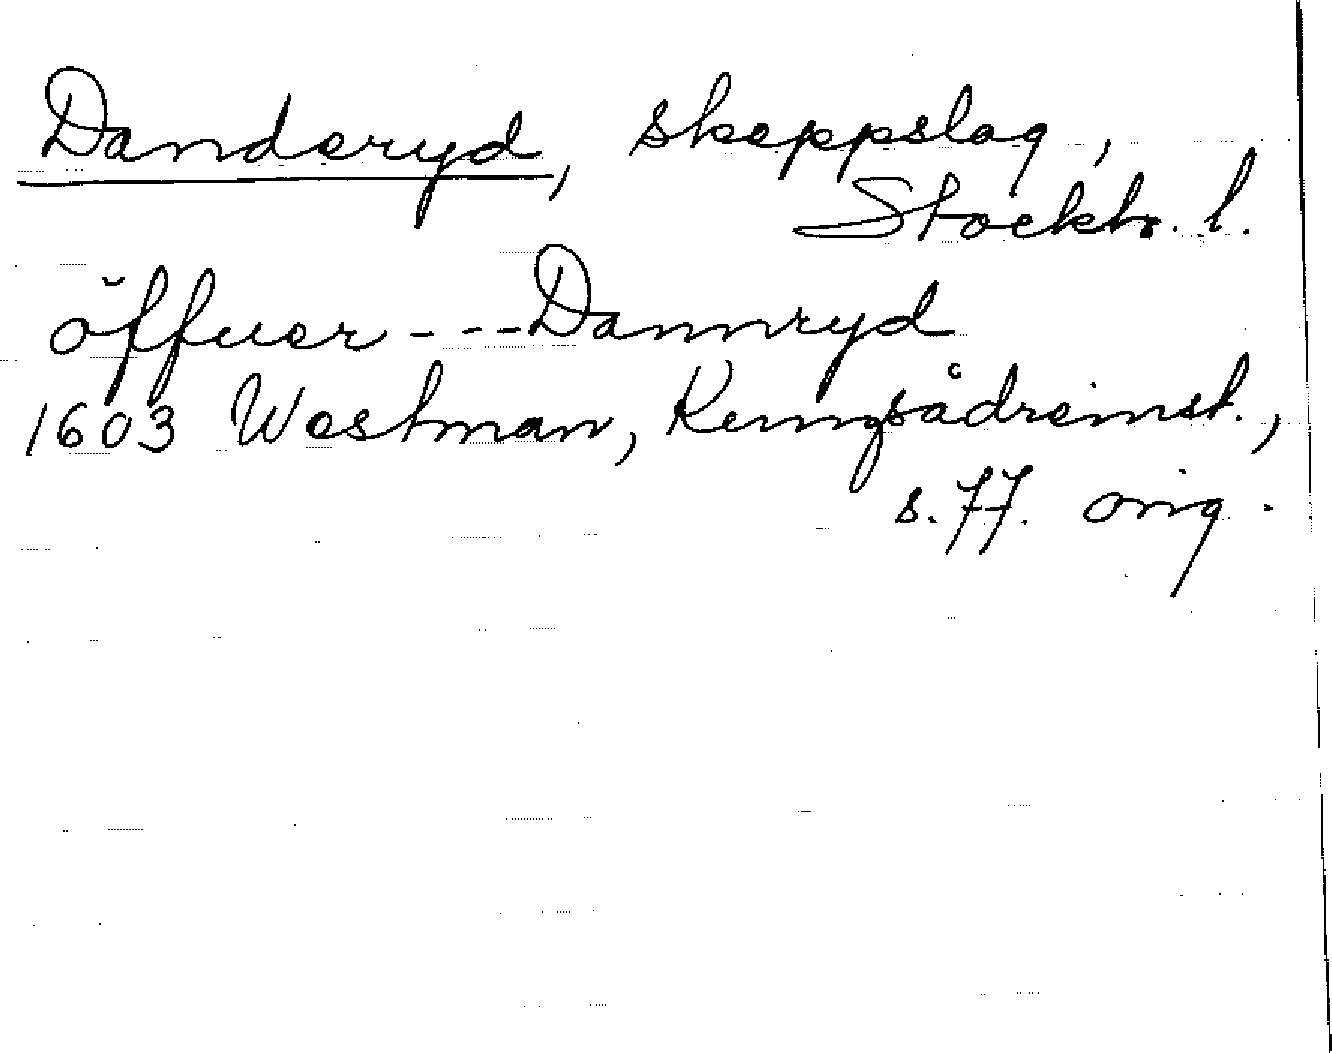 Danderyd, skeppslag,
Stockh. l.
öffuer - - - Dannryd
1603 Westman, Kungsådreinst.,
s. 77. orig.